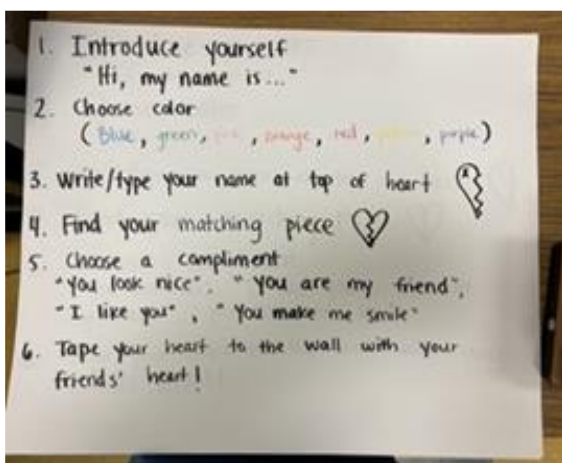 1. Introduce yourself
"Hi, my name is..."
2. Choose color
(Blue, green, pink, orange, red, yellow, purple)
3. Write/type your name at top of heart
4. Find your matching piece
5. Choose a compliment
"You look nice", "You are my friend",
"I like you", "You make me smile"
6. Tape your heart to the wall with your
friends' heart!